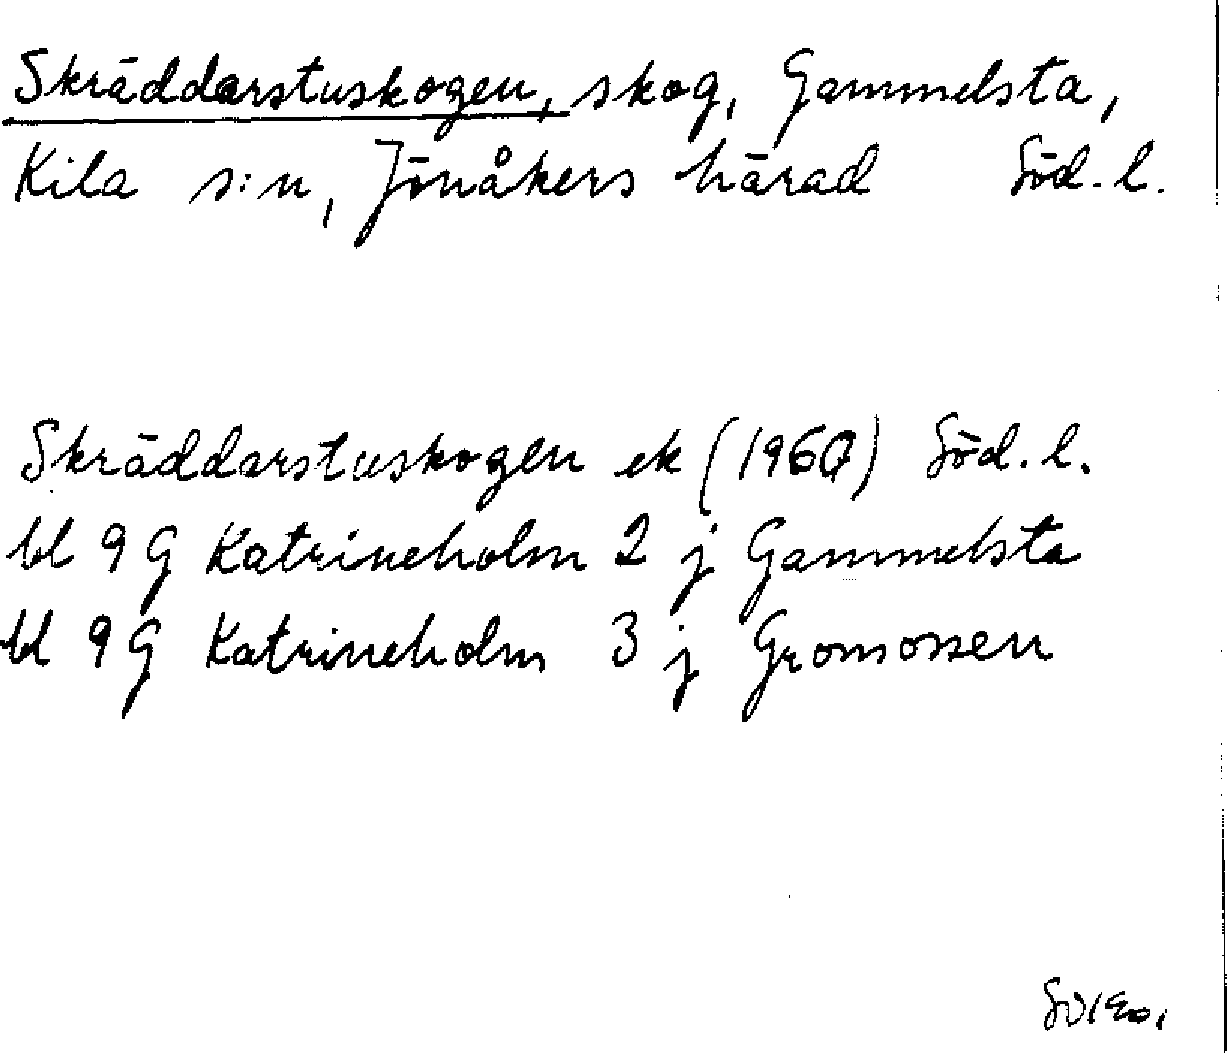 Skräddarstuskogen, skog, Gammelsta,
Kila s:n, Jönåkers härad Söd. l.
Skräddarstuskogen ek (1960) Söd. l.
bl 9 G Katrineholm 2 j Gammelsta
bl 9 G Katrineholm 3 j Gromossen